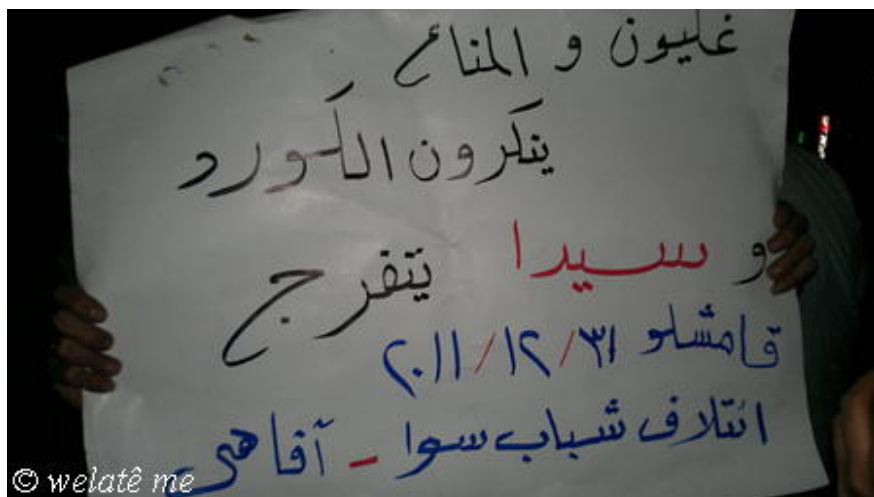 غليون و المناع
ينكرون الكورد
و سيدا يتفرج
قامشلو ٣١/١٢/٢٠١١
ائتلاف شباب سوا - آفاهي
© welatê me